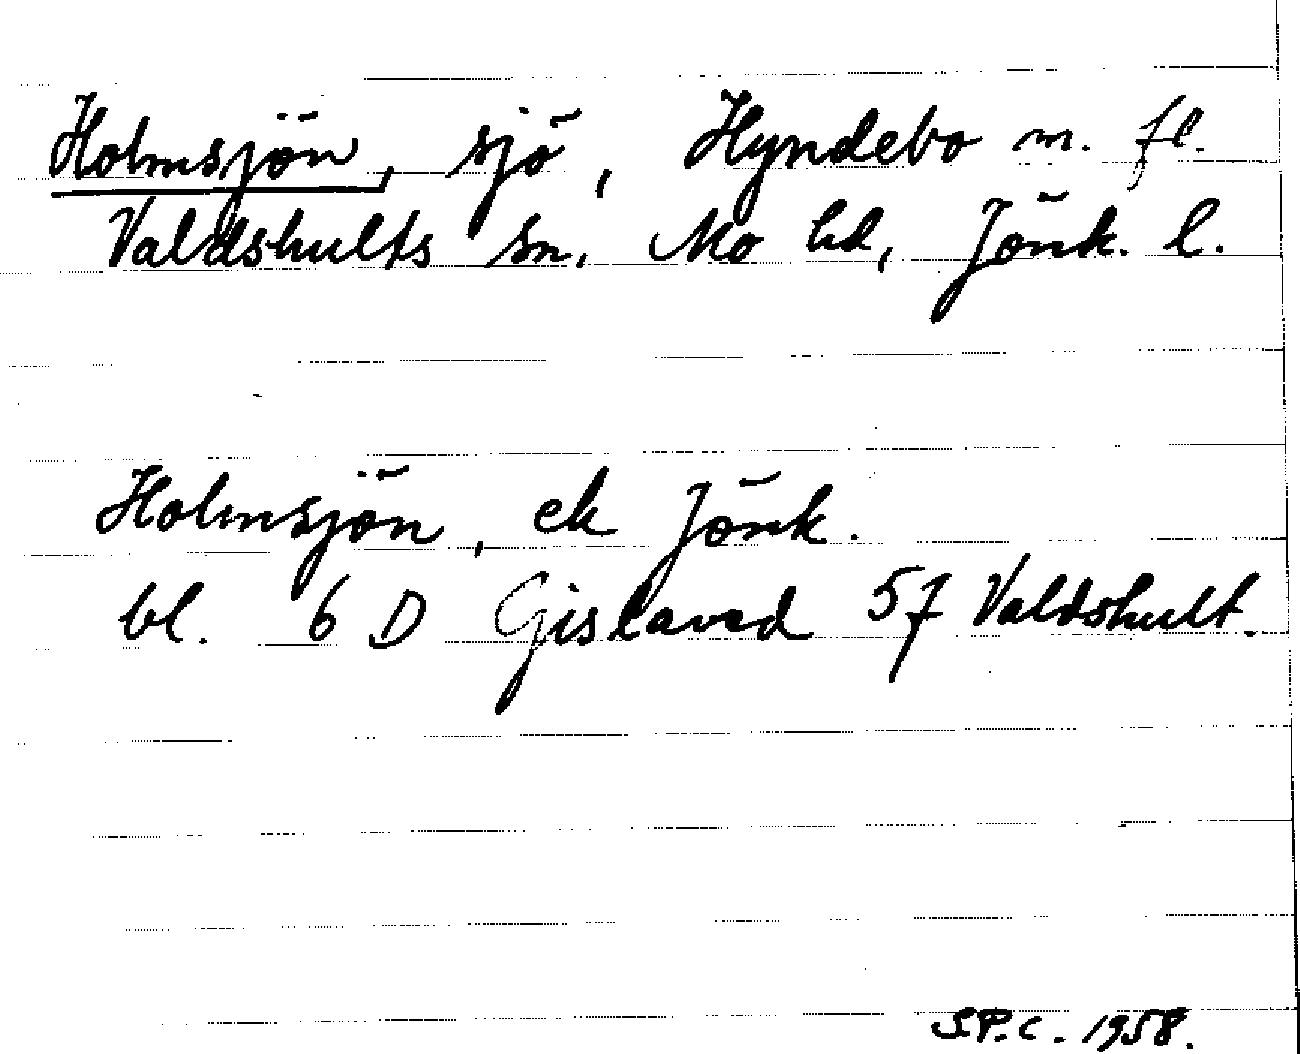 Holmsjön, sjö, Hyndebo m. fl.
Valdshults sn, Mo hd, Jönk. l.
Holmsjön, ek Jönk.
bl. 6 D Gislaved 5f Valdshult.
S.P.C. 1958.